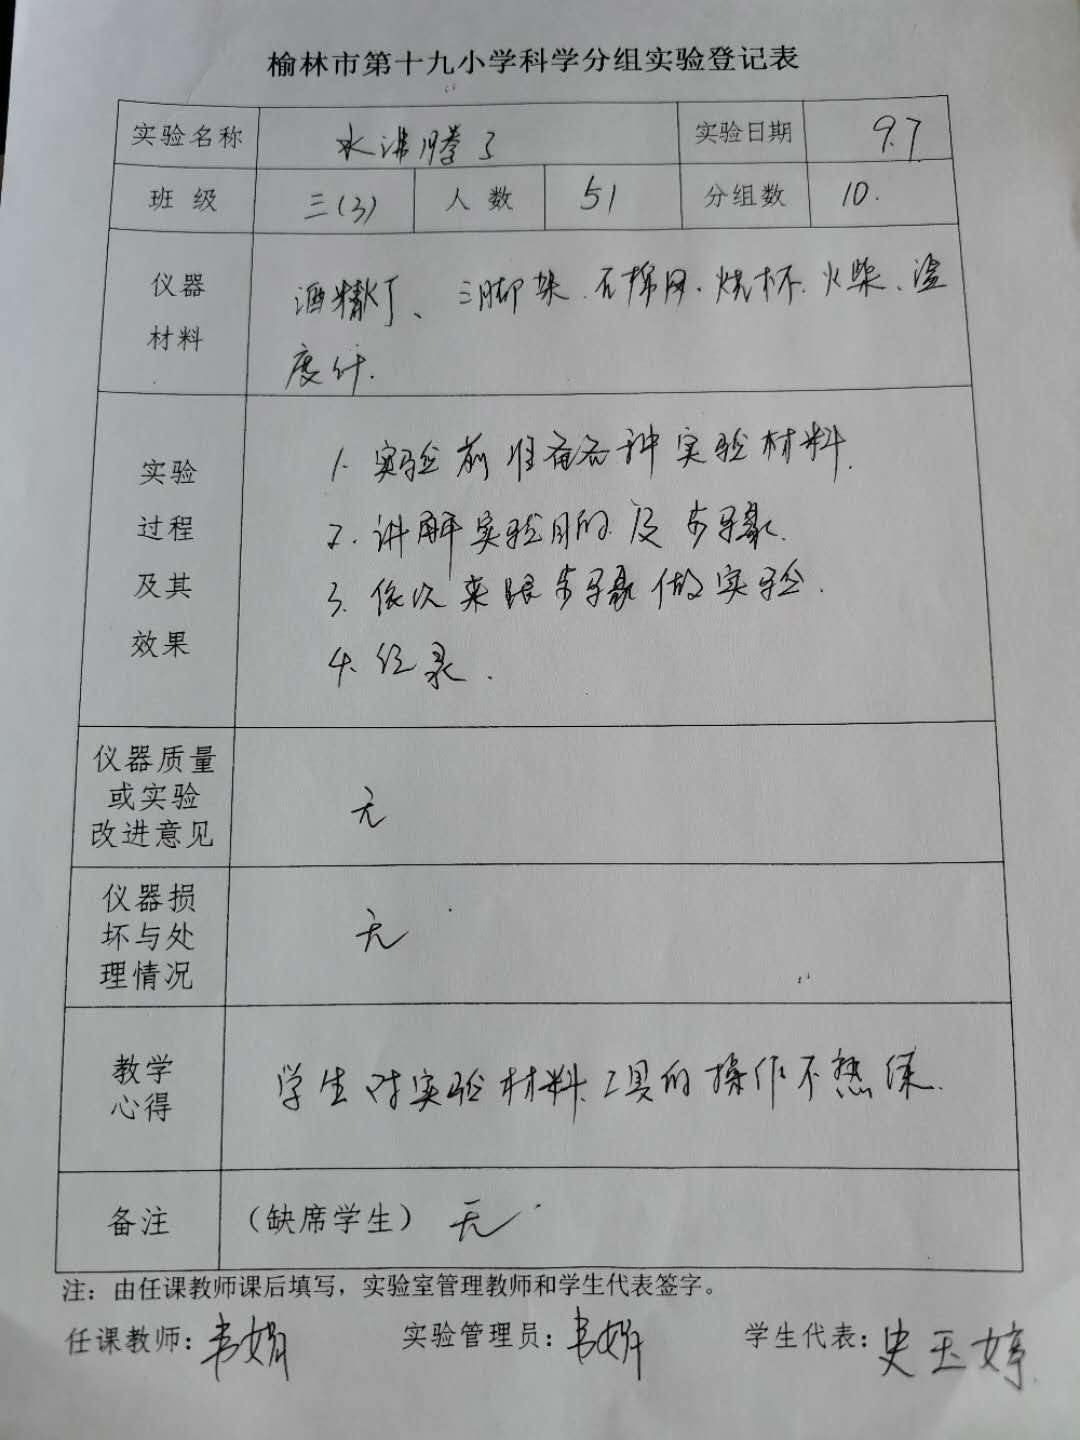 榆林市第十九小学科学分组实验登记表
实验名称 水沸腾了 实验日期 9.7
班级 三(3) 人数 51 分组数 10.
仪器材料 酒精灯、三脚架、石棉网、烧杯、火柴、温
度计.
实验过程及其效果
1. 实验前准备各种实验材料.
2. 讲解实验目的及步骤.
3. 依次来跟步骤做实验.
4. 记录.
仪器质量
或实验
改进意见
无
仪器损
坏与处
理情况
无
教学
心得
学生对实验材料、工具的操作不熟练.
备注 (缺席学生) 无
注：由任课教师课后填写，实验室管理教师和学生代表签字。
任课教师: 韦娟 实验管理员: 韦娟 学生代表: 史玉婷